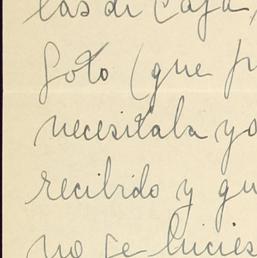 las di Caja,
Soto (que p
necesitaba yo
recibido y qu
no se hicies